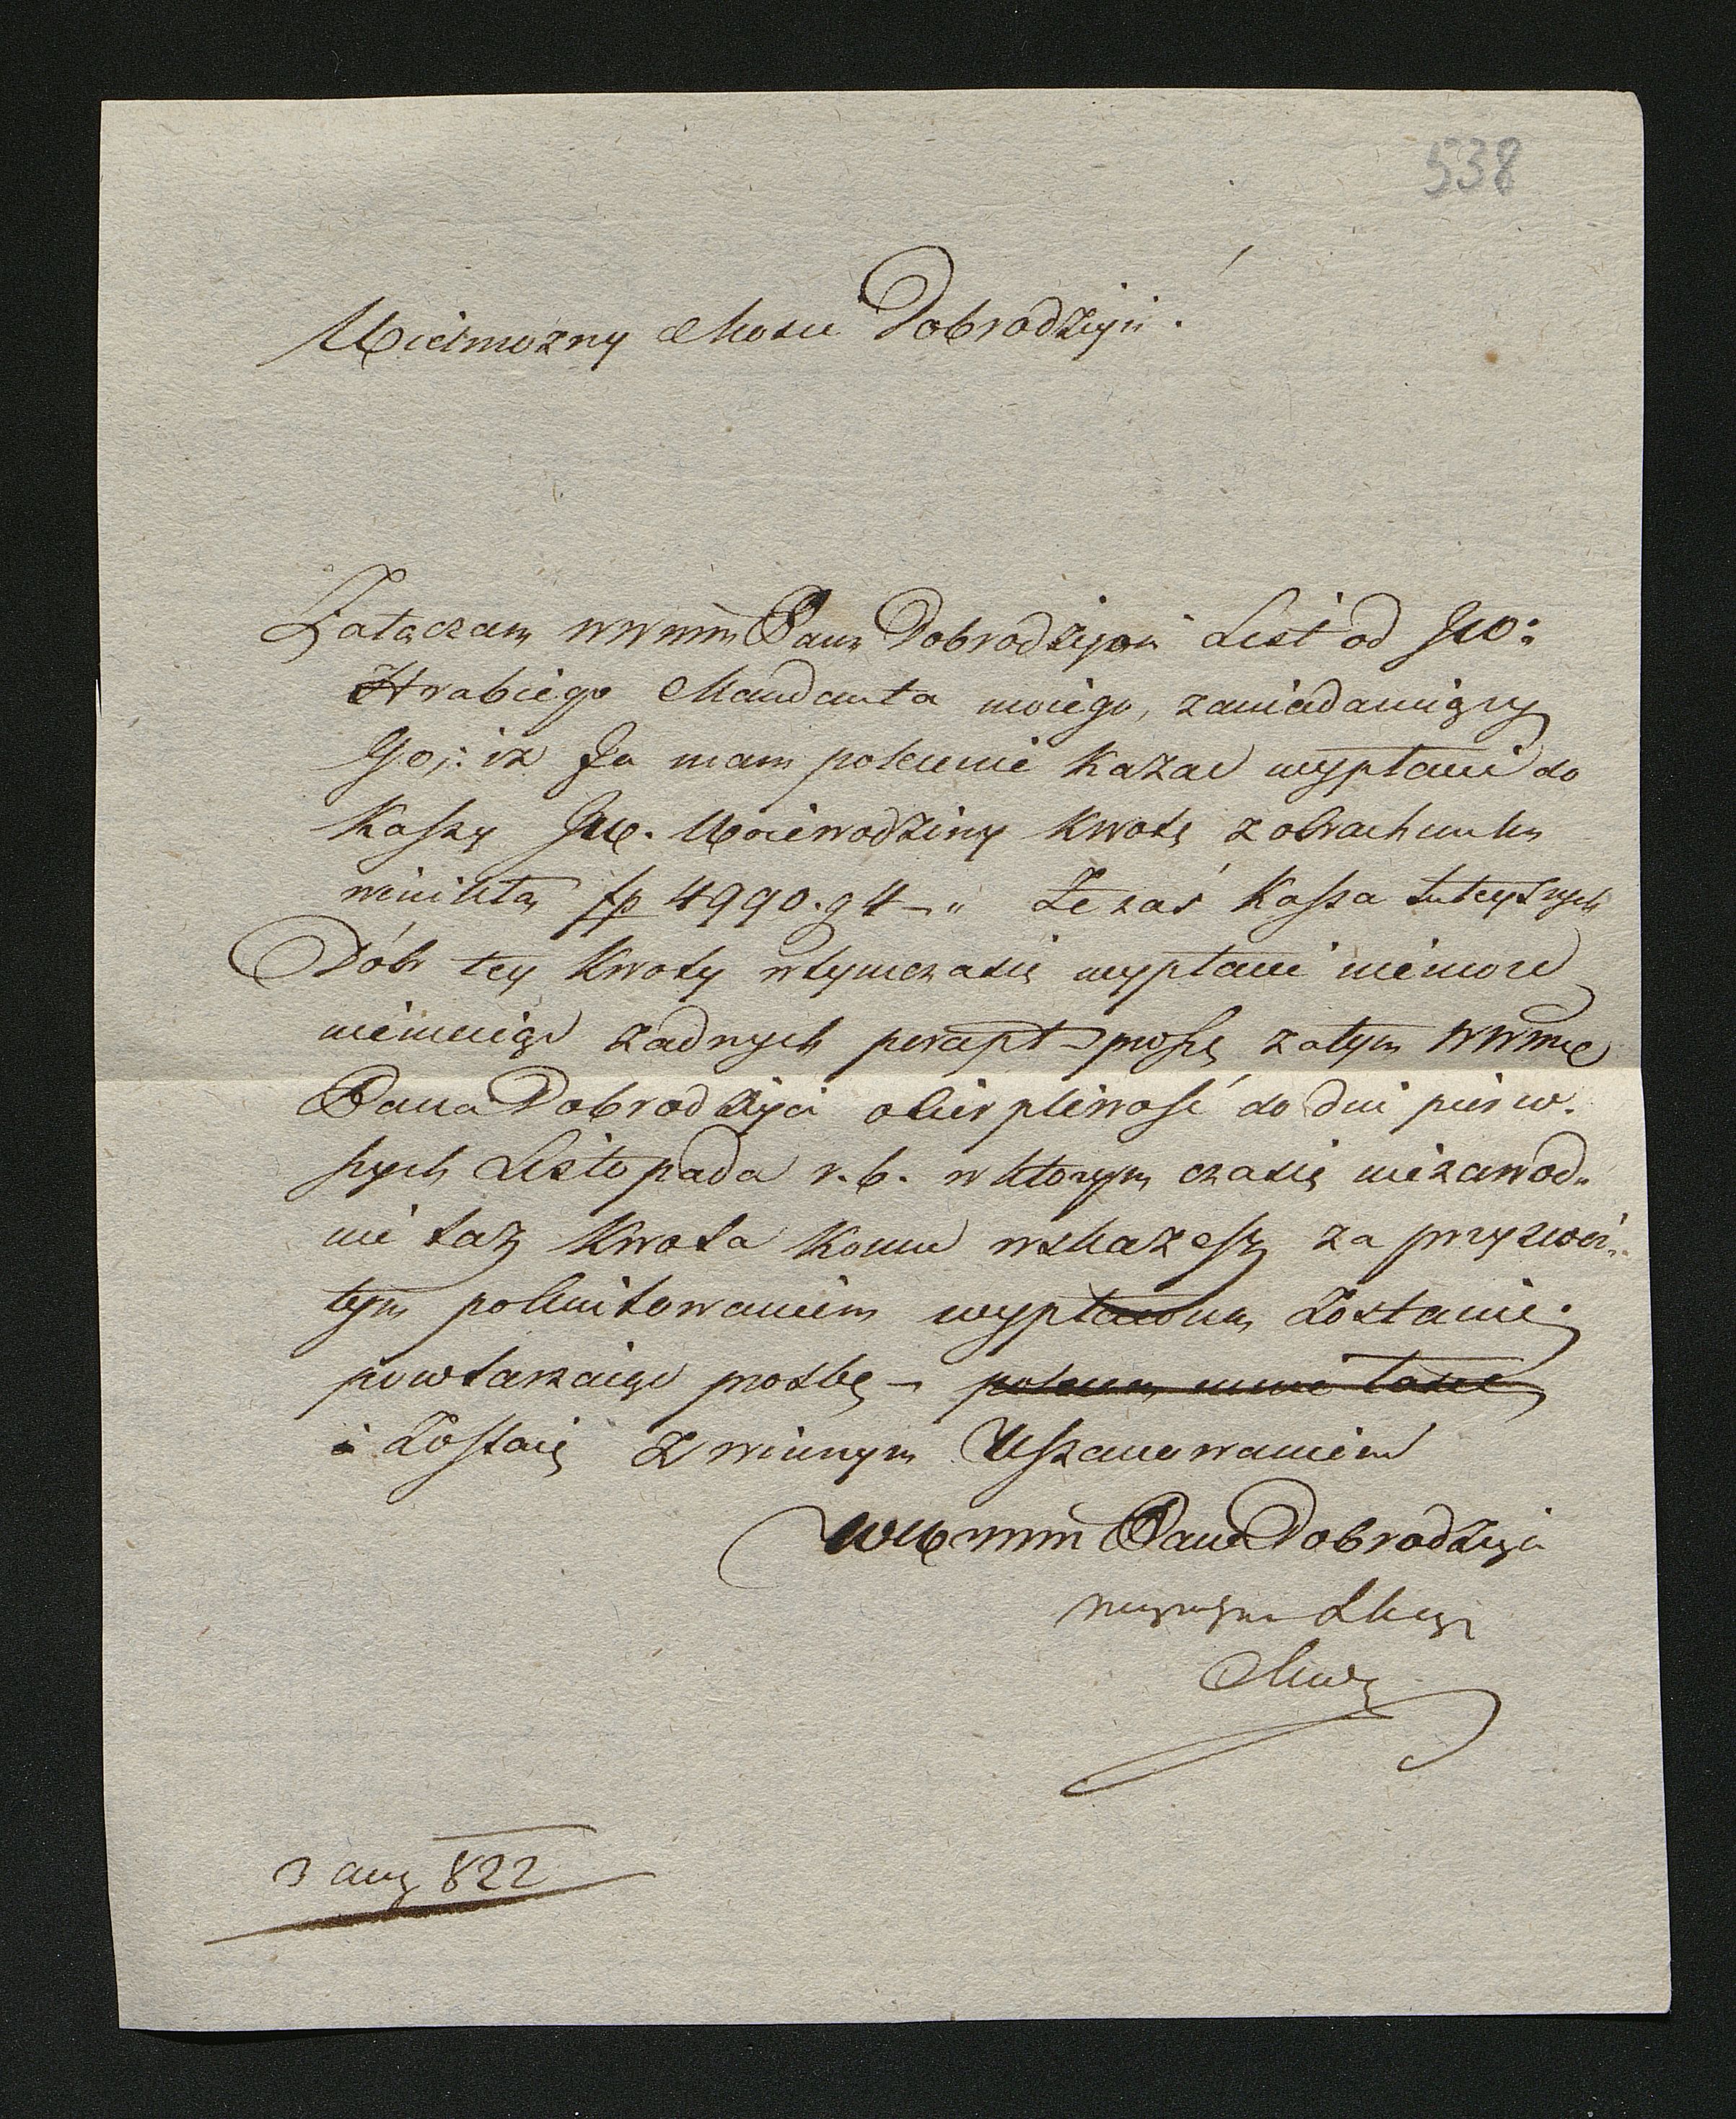 538
Wielmozny Mosci Dobrodzieju!
Załączam WWmm Panu Dobrodziejowi List od JW:
Hrabiego Mandanta moiego, zawiadamiaiący
Go: iż Ja mam polecenie kazać wypłacić do
Kassy JW. Woiewodziny kwotę z obrachunku
wynikłą fp 4990. g 4 –„ Że zaś Kassa tuteyszych
Dóbr tey kwoty w tymczasie wypłacić niemoże
niemaiąc żadnych percept – proszę zatym WWmć
Pana Dobrodzieja o cierpliwość do dni pierw-
szych Listopada r. b. w którym czasie niezawod-
nie taż kwota komu wskażesz za przyzwoi-
tym pokwitowaniem wypłacona zostanie
powtarzaiąc prośbę –
i zostaię z winnym Uszanowaniem
WWmm Pana Dobrodzieja
Sługą
3 aug 822